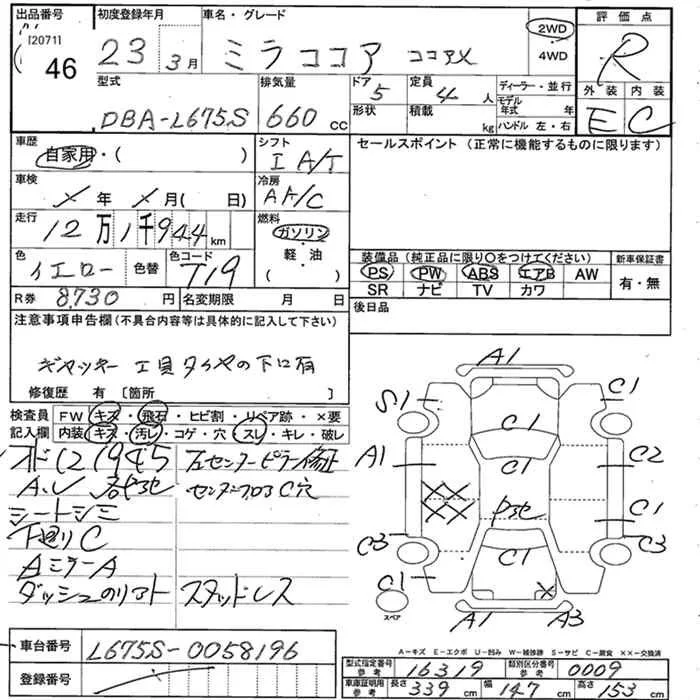 出品番号 初度登録年月 車名・グレード 評価点
[2071] 46 23 3月 ミラココア ココアX 2WD 4WD R
型式 排気量 ドア 定員 ディーラー・並行 外装 内装
DBA-L675S 660 cc 5 4人 モデル年式 年 E C
形状 積載 kg ハンドル 左・右
車歴 シフト セールスポイント (正常に機能するものに限ります)
自家用・( ) I A/T
車検 冷房
X年 X月( 日) AA/C
走行 燃料
12万1千944km ガソリン
色 色替 色コード 軽・油
イエロー T19 ( )
装備品 (純正品に限り○をつけてください) 新車保証書
PS PW ABS エアB AW 有・無
SR ナビ TV カワ
R券 8,730円 名変期限 月 日 後日品
注意事項申告欄 (不具合内容等は具体的に記入して下さい)
ギャッキー 工具タイヤの下に有
修復歴 有 〔箇所 〕
検査員 FW キズ・飛石・ヒビ割・リペア跡・×要
記入欄 内装 キズ・汚レ・コゲ・穴・スレ・キレ・破レ
左センターピラー修正
センターフロアC穴
シートシミ
下廻りC
AミラーA
ダッシュのリアト スタッドレス
A1
S1 C1
C1
A1 C1 C2
XX
XX P3セ C1
C3 C1 C3
C1 X
スペア
A1 A3
A-キズ E-エクボ U-凹み W-補修跡 S-サビ C-腐食 ××-交換済
車台番号 L675S-0058196
登録番号
型式指定番号 参考 16319 類別区分番号 参考 0009
車庫証明用 参考 長さ 339cm 幅 147cm 高さ 153cm